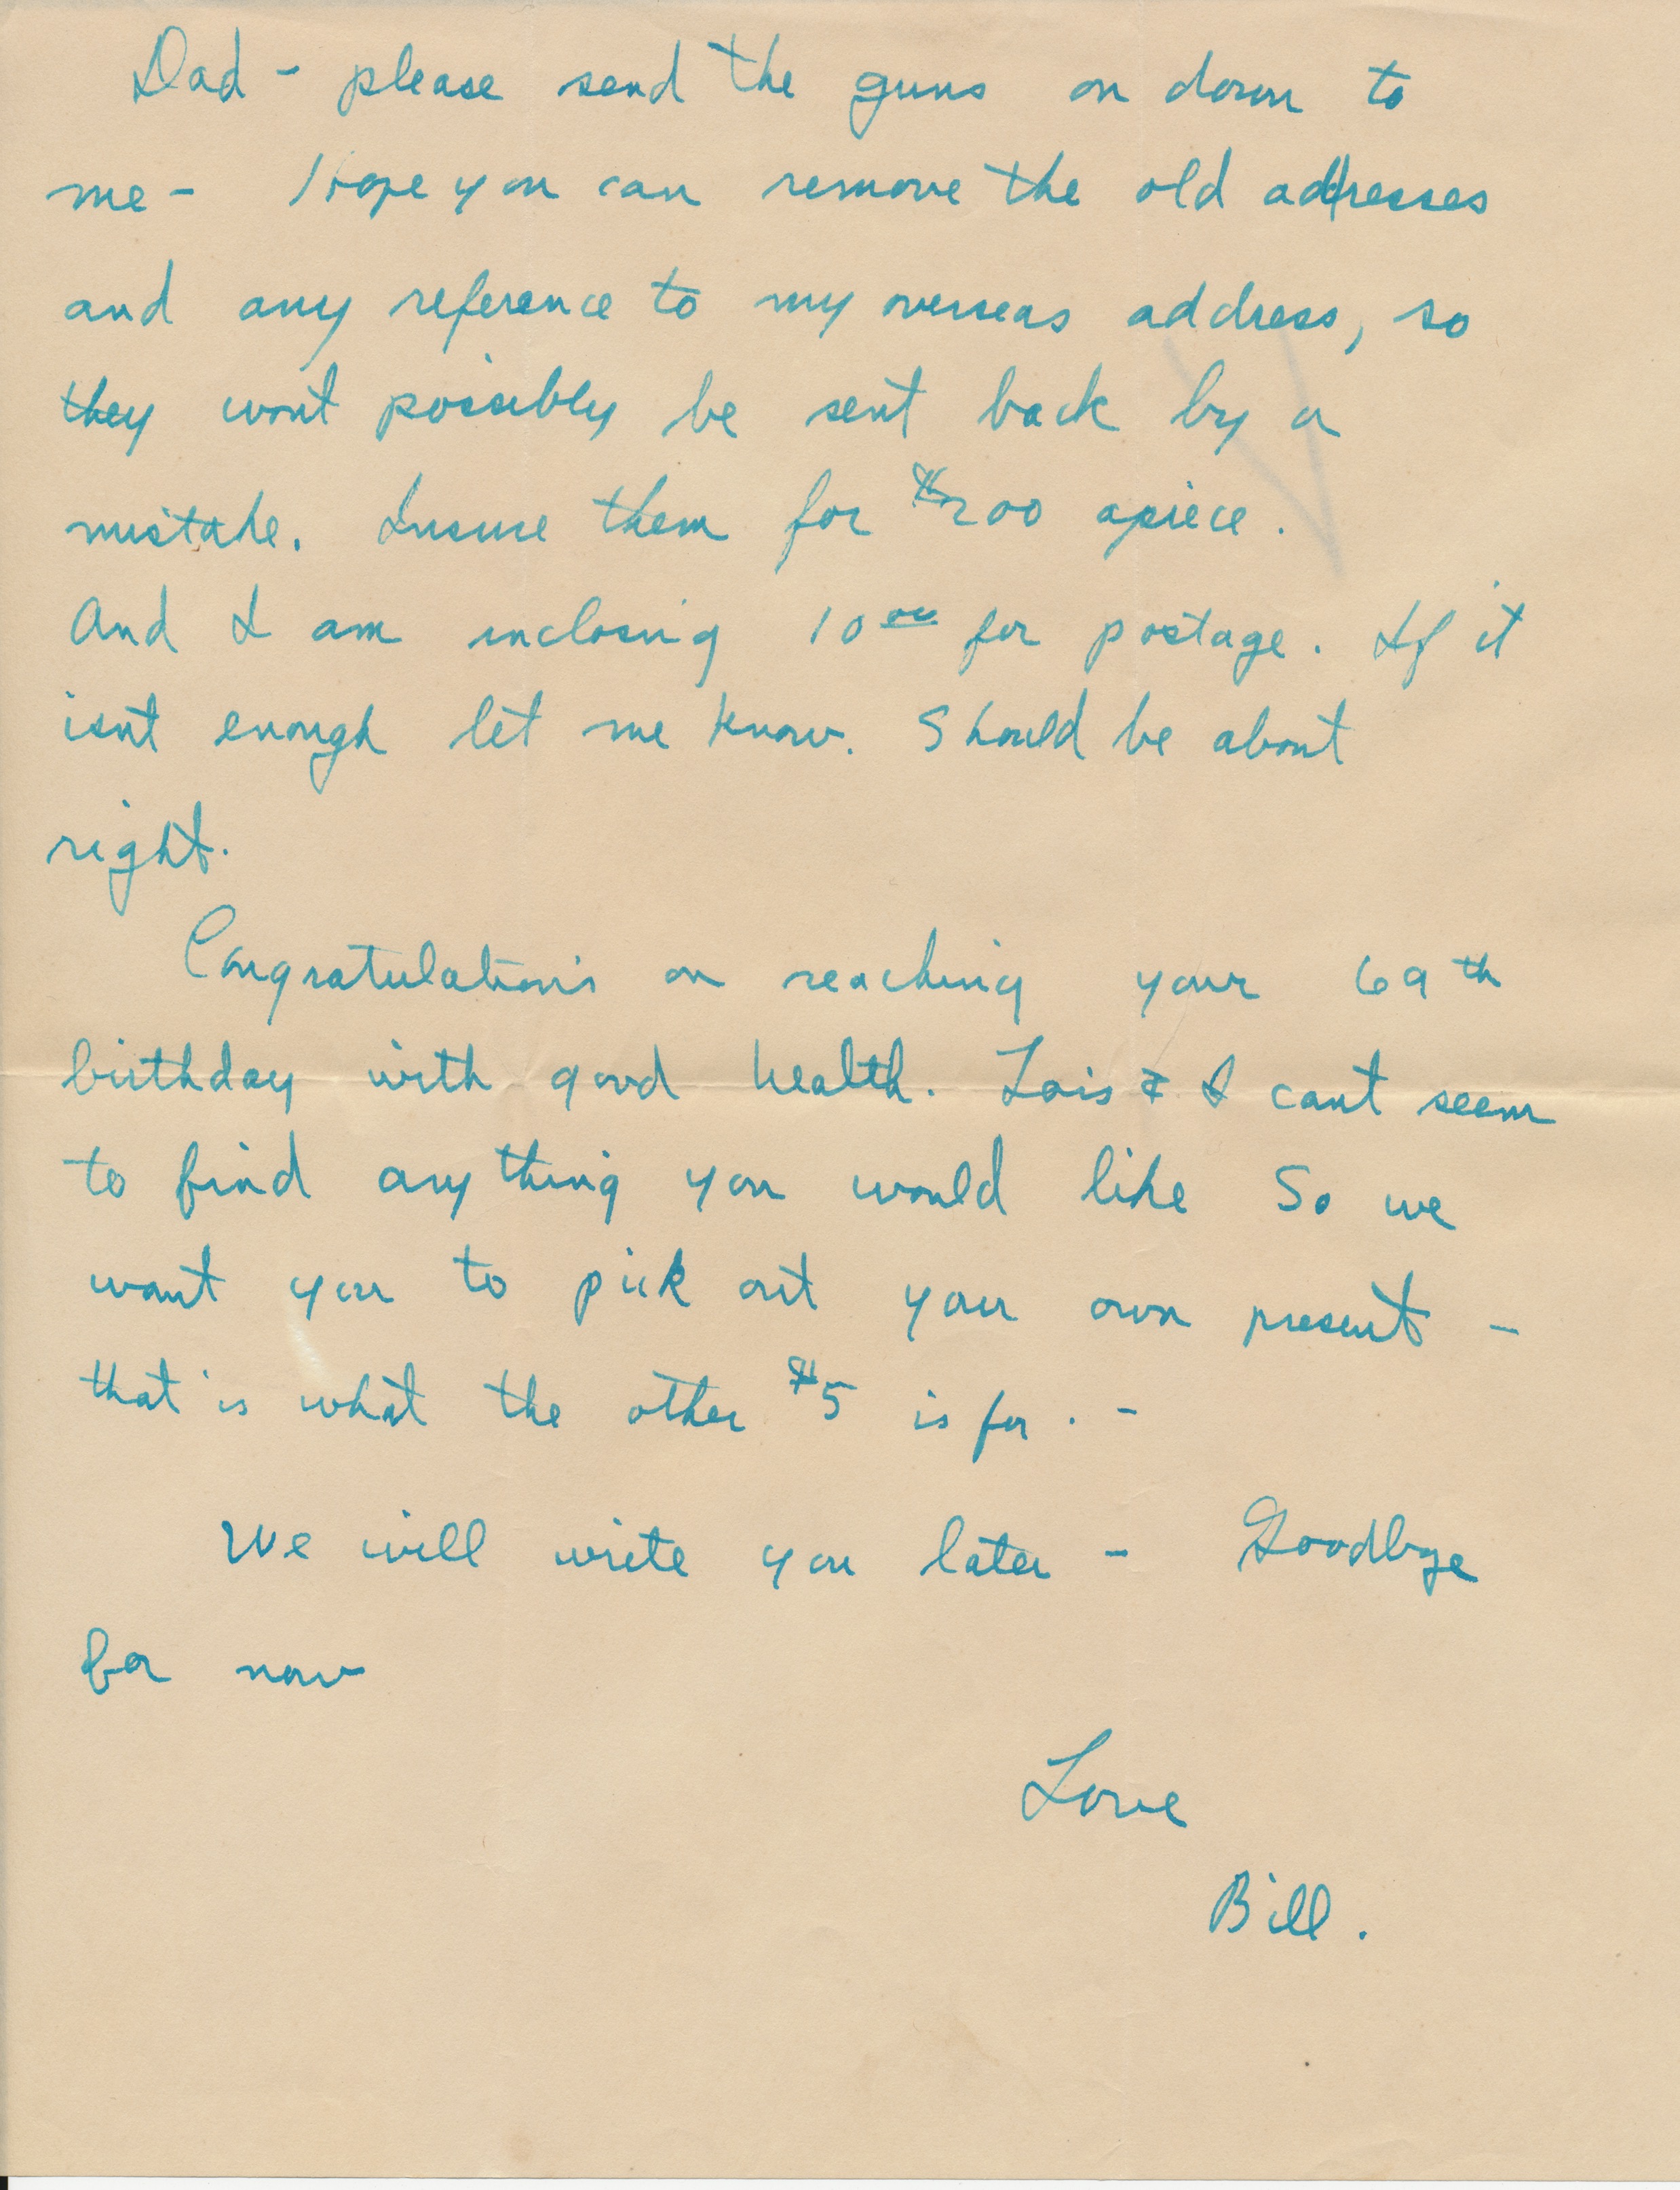 Dad - please send the guns on down to
me - Hope you can remove the old addresses
and any reference to my overseas address, so
they wont possibly be sent back by a
mistake. Insure them for $200 apiece.
And I am inclosing 10 00 for postage. If it
isnt enough let me know. Should be about
right.
Congratulations on reaching your 69th
birthday with good health. Lois & I cant seem
to find anything you would like So we
want you to pick out your own present -
that is what the other $5 is for. -
We will write you later - Goodbye
for now
Love
Bill.